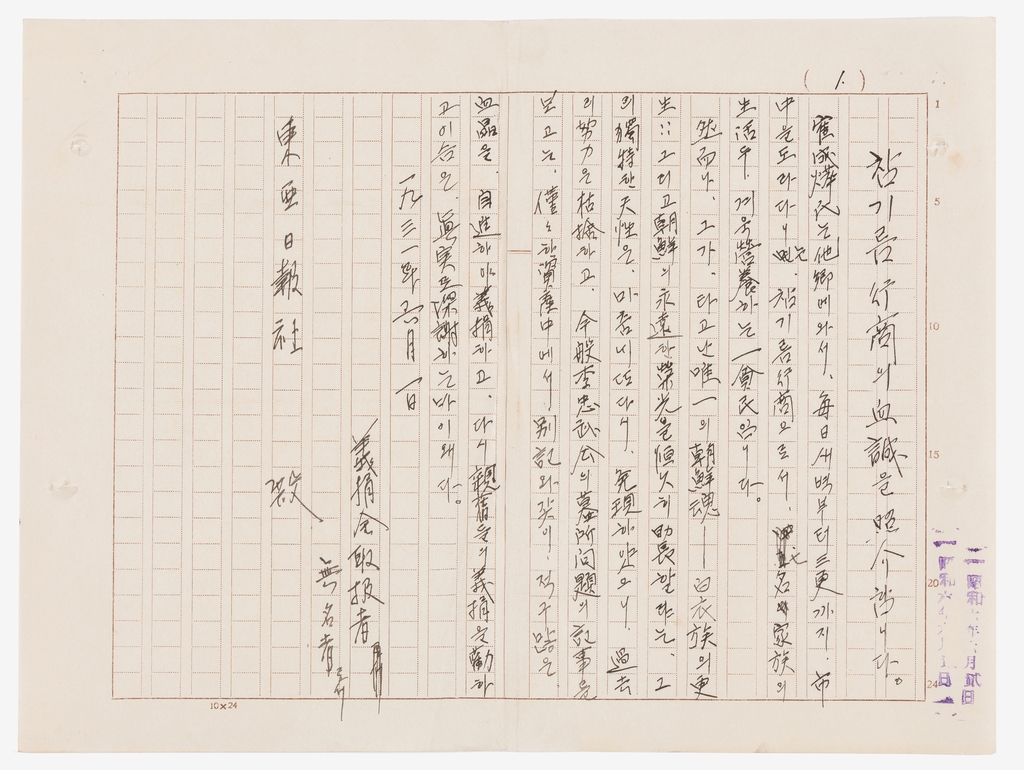 ( 1. )
참기름 行商의 血誠을 照介합니다。
崔成燁氏는 他鄕에와서、每日새벽부터三更까지、市
中을도라다니는、참기름行商으로서、七名家族의
生活우、겨우營養하는 一貧民임니다。
然而나、그가、타고난唯一의朝鮮魂──白衣族의更
生!! 그리고朝鮮의永遠한榮光을恒久히助長할나는、그
의獨特한天性은、마츰내또다시、発現하얏으니、過去
의努力은枯捨하고、今般李忠武公의墓所问題의記事을
보고는、僅々한資産中에서 別記와갗이、적구많은
血晶을、自進하야義捐하고、다시親舊들의義捐을勸하
고이슴은、眞実로深謝하는바이왜다。
一九三一年六月一日
義捐金取扱者
無名者로서
東亜日報社
1
5
10
15
20
24
10×24
昭和六年六月貳日
昭和六年六月 日